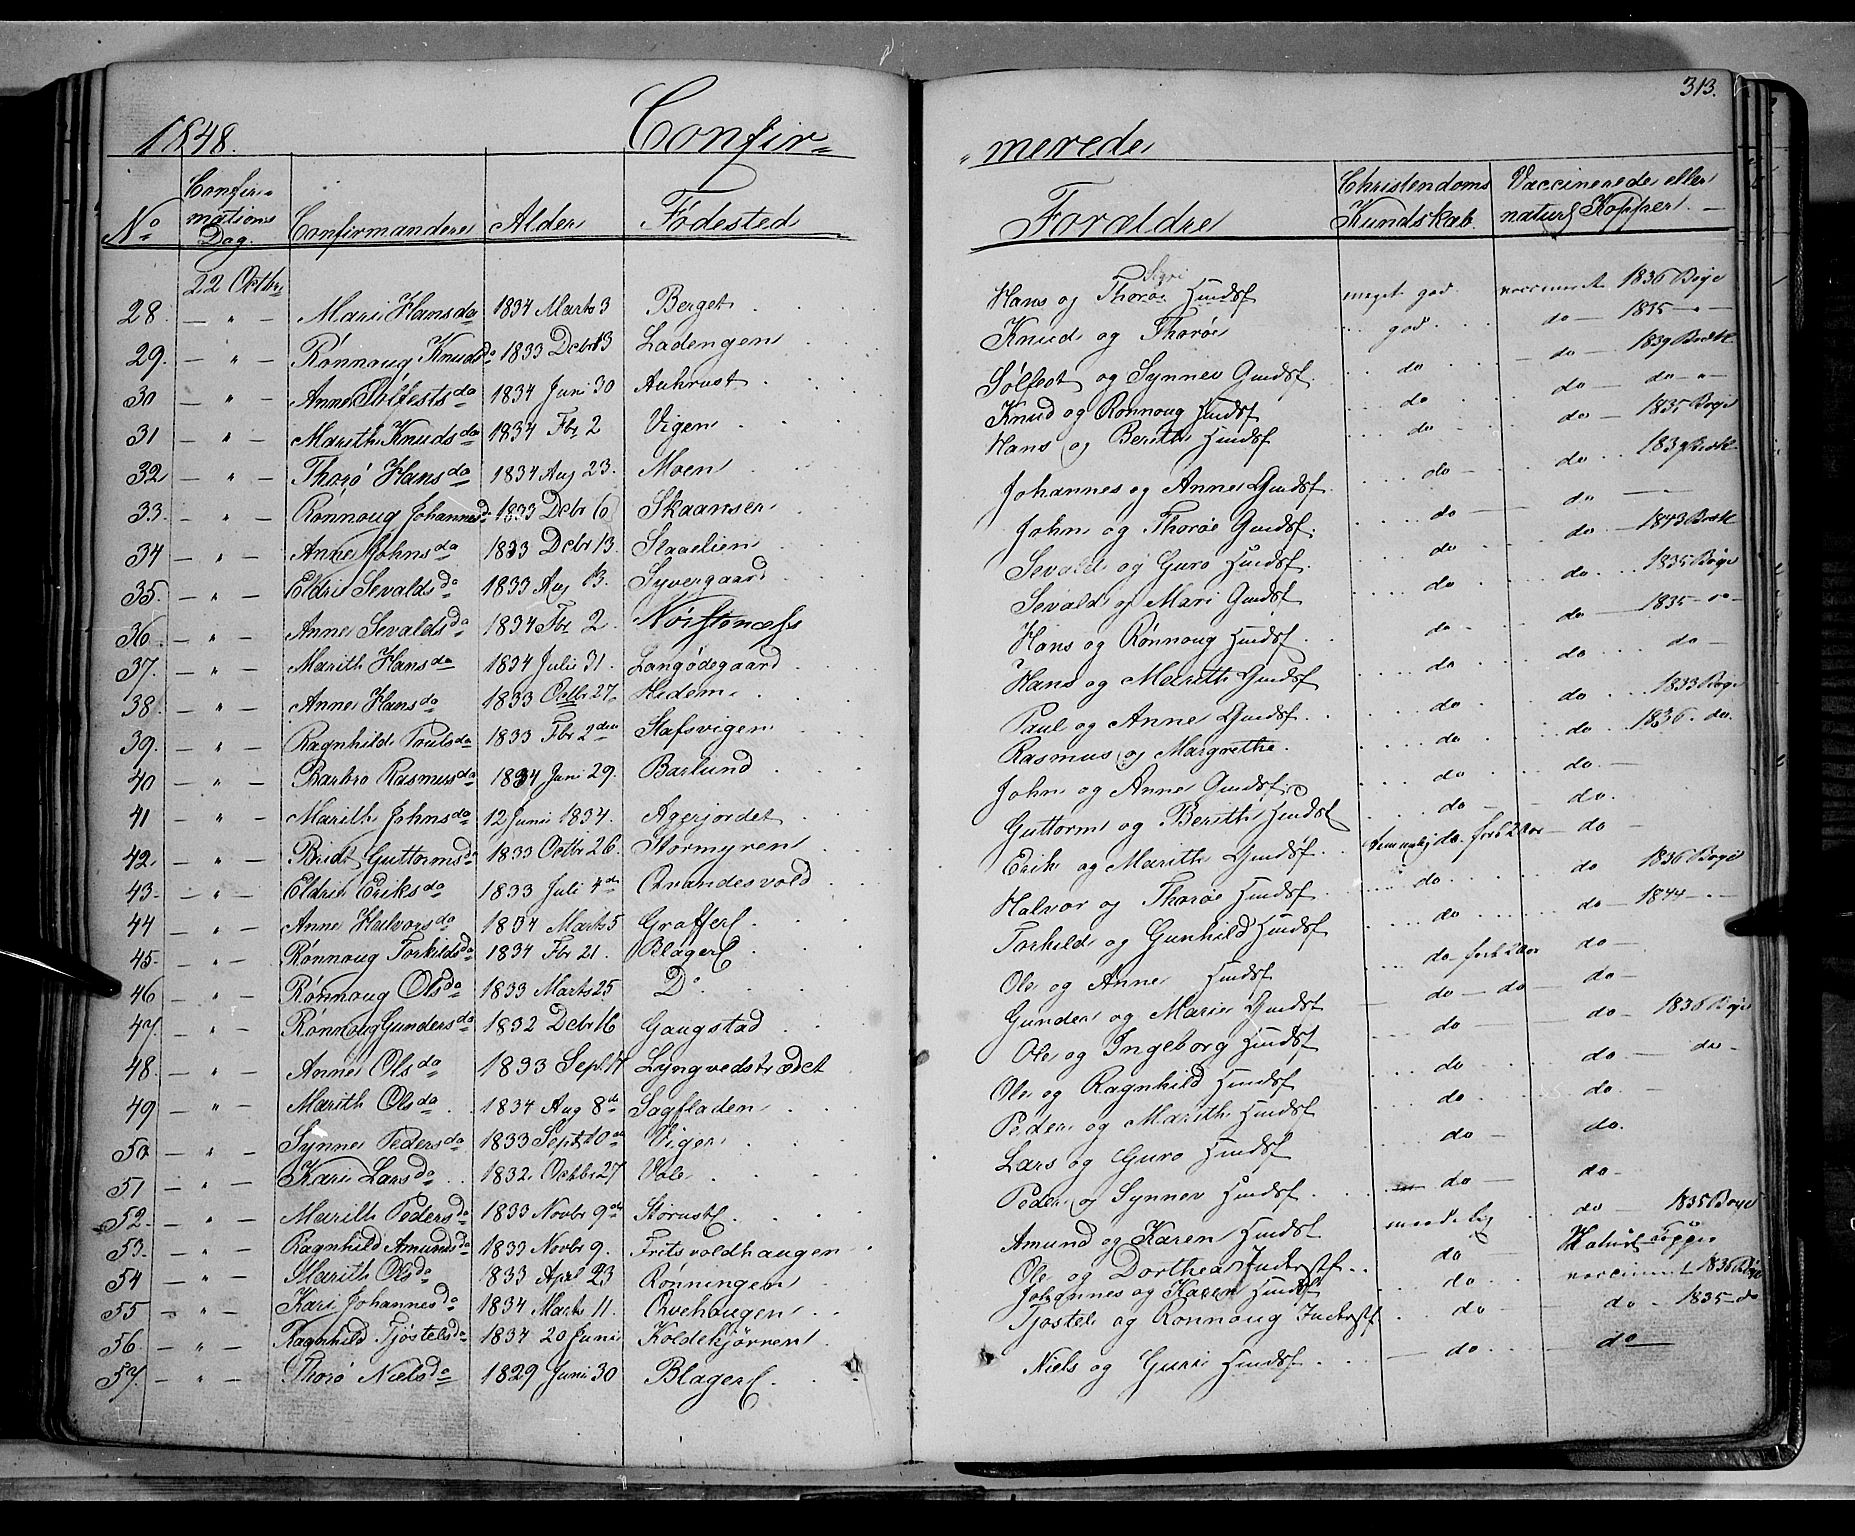 313.
1848. Confir-
-merede
No
Confir-
mations
Dag.
Confirmandere
Alder
Fødested
Forældre
Christendoms
Kundskab.
Vaccinerede eller
naturl Kopper. -
22 Octbr
28. - " - Mari Hansda 1834 Marts 3 Berget Hans og Thoroe Huusf meget god. vaccineret 1836 Boye
Sigri
29. - " - Rønnoug Knudsda 1833 Debr 13 Ladengen Knud og Thoroe god. do - 1835 - " -
30 - " - Anne Sølfestsda 1834 Juni 30 Auhrust Sølfest og Synnev Gmdsf. do - do - 1839
31 - " - Marith Knudsda 1834 Fbr 2 Vigen Knud og Rønnoug Huusf do do - do - " -
32 - " - Thorø Hansda 1834 Aug 23. Moen Hans og Berith Huusf do - do - 1835 Boye
33. - " - Rønnoug Johannesda 1833 Debr 6 Skaansen Johannes og Anne Gmdsf. do do - 1839
34 - " - Anne Johnsda 1833 Debr 13. John og Thoroe Gmdsf. do - do
35. - " - Eldri Sevaldsda 1833 Aug 13. Syvergaard Sevald og Guro Huusf. do do - 1843
36 - " - Anne Sevaldsda 1834 Fbr 2. Sevald og Mari Gmdsf do do 1835 Boye
37. - " - Marith Hansda 1834 Juli 31. Langødegaard Hans og Rønnoug Huusf. do do 1835 - " -
38. - " - Anne Hansda 1833 Octbr 27. Hidem Hans og Marith Gmdsf do do do -
39. - " - Ragnhild Poulsda 1833 Fbr 2den Stafsvigen Paul og Anne Gmdsf. do do 1833 Boye
40 - " - Barbro Rasmusda 1834 Juni 29. Barlund Rasmus og Margrethe. do do. 1836. do.
41 - " - Marith Johnsda 12 Juni 1834. Agerjordet John og Anne Gmdsf. do do. -
42. - " - Guttormsda 1833 Octbr 26. Stormyren Guttorm og Berith Huusf do - do.
43. - " - Eldri Eriksda 1833 Juli 4de Qvandesvold Erik og Marith Gmdsf. do. forb 2 Aar - do -
44 - " - Anne Halvorsda 1834 Marts 5 Graffer Halvor og Thoroe Huusf do do 1836 Boye
45. - " - Rønnoug Torkildsda 1834 Fbr 21. Blager Torkild og Gunhild Huusf do do - 1844 - " -
46 - " - Rønnoug Olsda 1833 Marts 25 Do Ole og Anne Huusf do forb 2 Aar do -
47. - " - Rønnoug Gundersda 1832 Debr 16 Gaugstad Gunder og Marie Gmdsf - do - do - do -
48. - " - Anne Olsda 1833 Sept. Lyngvedstrædet Ole og Ingeborg Huusf do - - do - 1836 Boye
49 - " - Marith Olsda 1834 Aug 8de Sagfladen Ole og Ragnhild Huusf do do - do -
50 - " - Synne Pedersda 1833 Sept. 10de Vigen Peder og Marith Huusf do do -
51 - " - Kari Larsda 1832. Octbr 27 Vole Lars og Guro Huusf do - do.
52. - " - Marith Pedersda 1833 Novbr 9de Størust Peder og Synnev Huusf. do - do -
53. - " - Ragnhild Amundsda 1833 Novbr 9. Fritsvoldhaugen Amund og Karen Huusf maadelig do - 1835 Boye
54 - " - Marith Olsda 1833 April 23 Rønningen Ole og Dorthea Inderstf. do Naturl Kopper
55 - " - Kari Johannesda 1834 Marts 11. Qvehaugen Johannes og Karen Huusf do vaccineret 1836 Boye
56. - " - Ragnhild Tjøstelsda 1834 20 Juni Koldekjørnen Tjøstel og Rønnoug Inderstf do - do - 1835 - do
57. - " - Thorø Nielsda 1829 Juni 30 Blager Niels og Guri Huusf - do - - do -